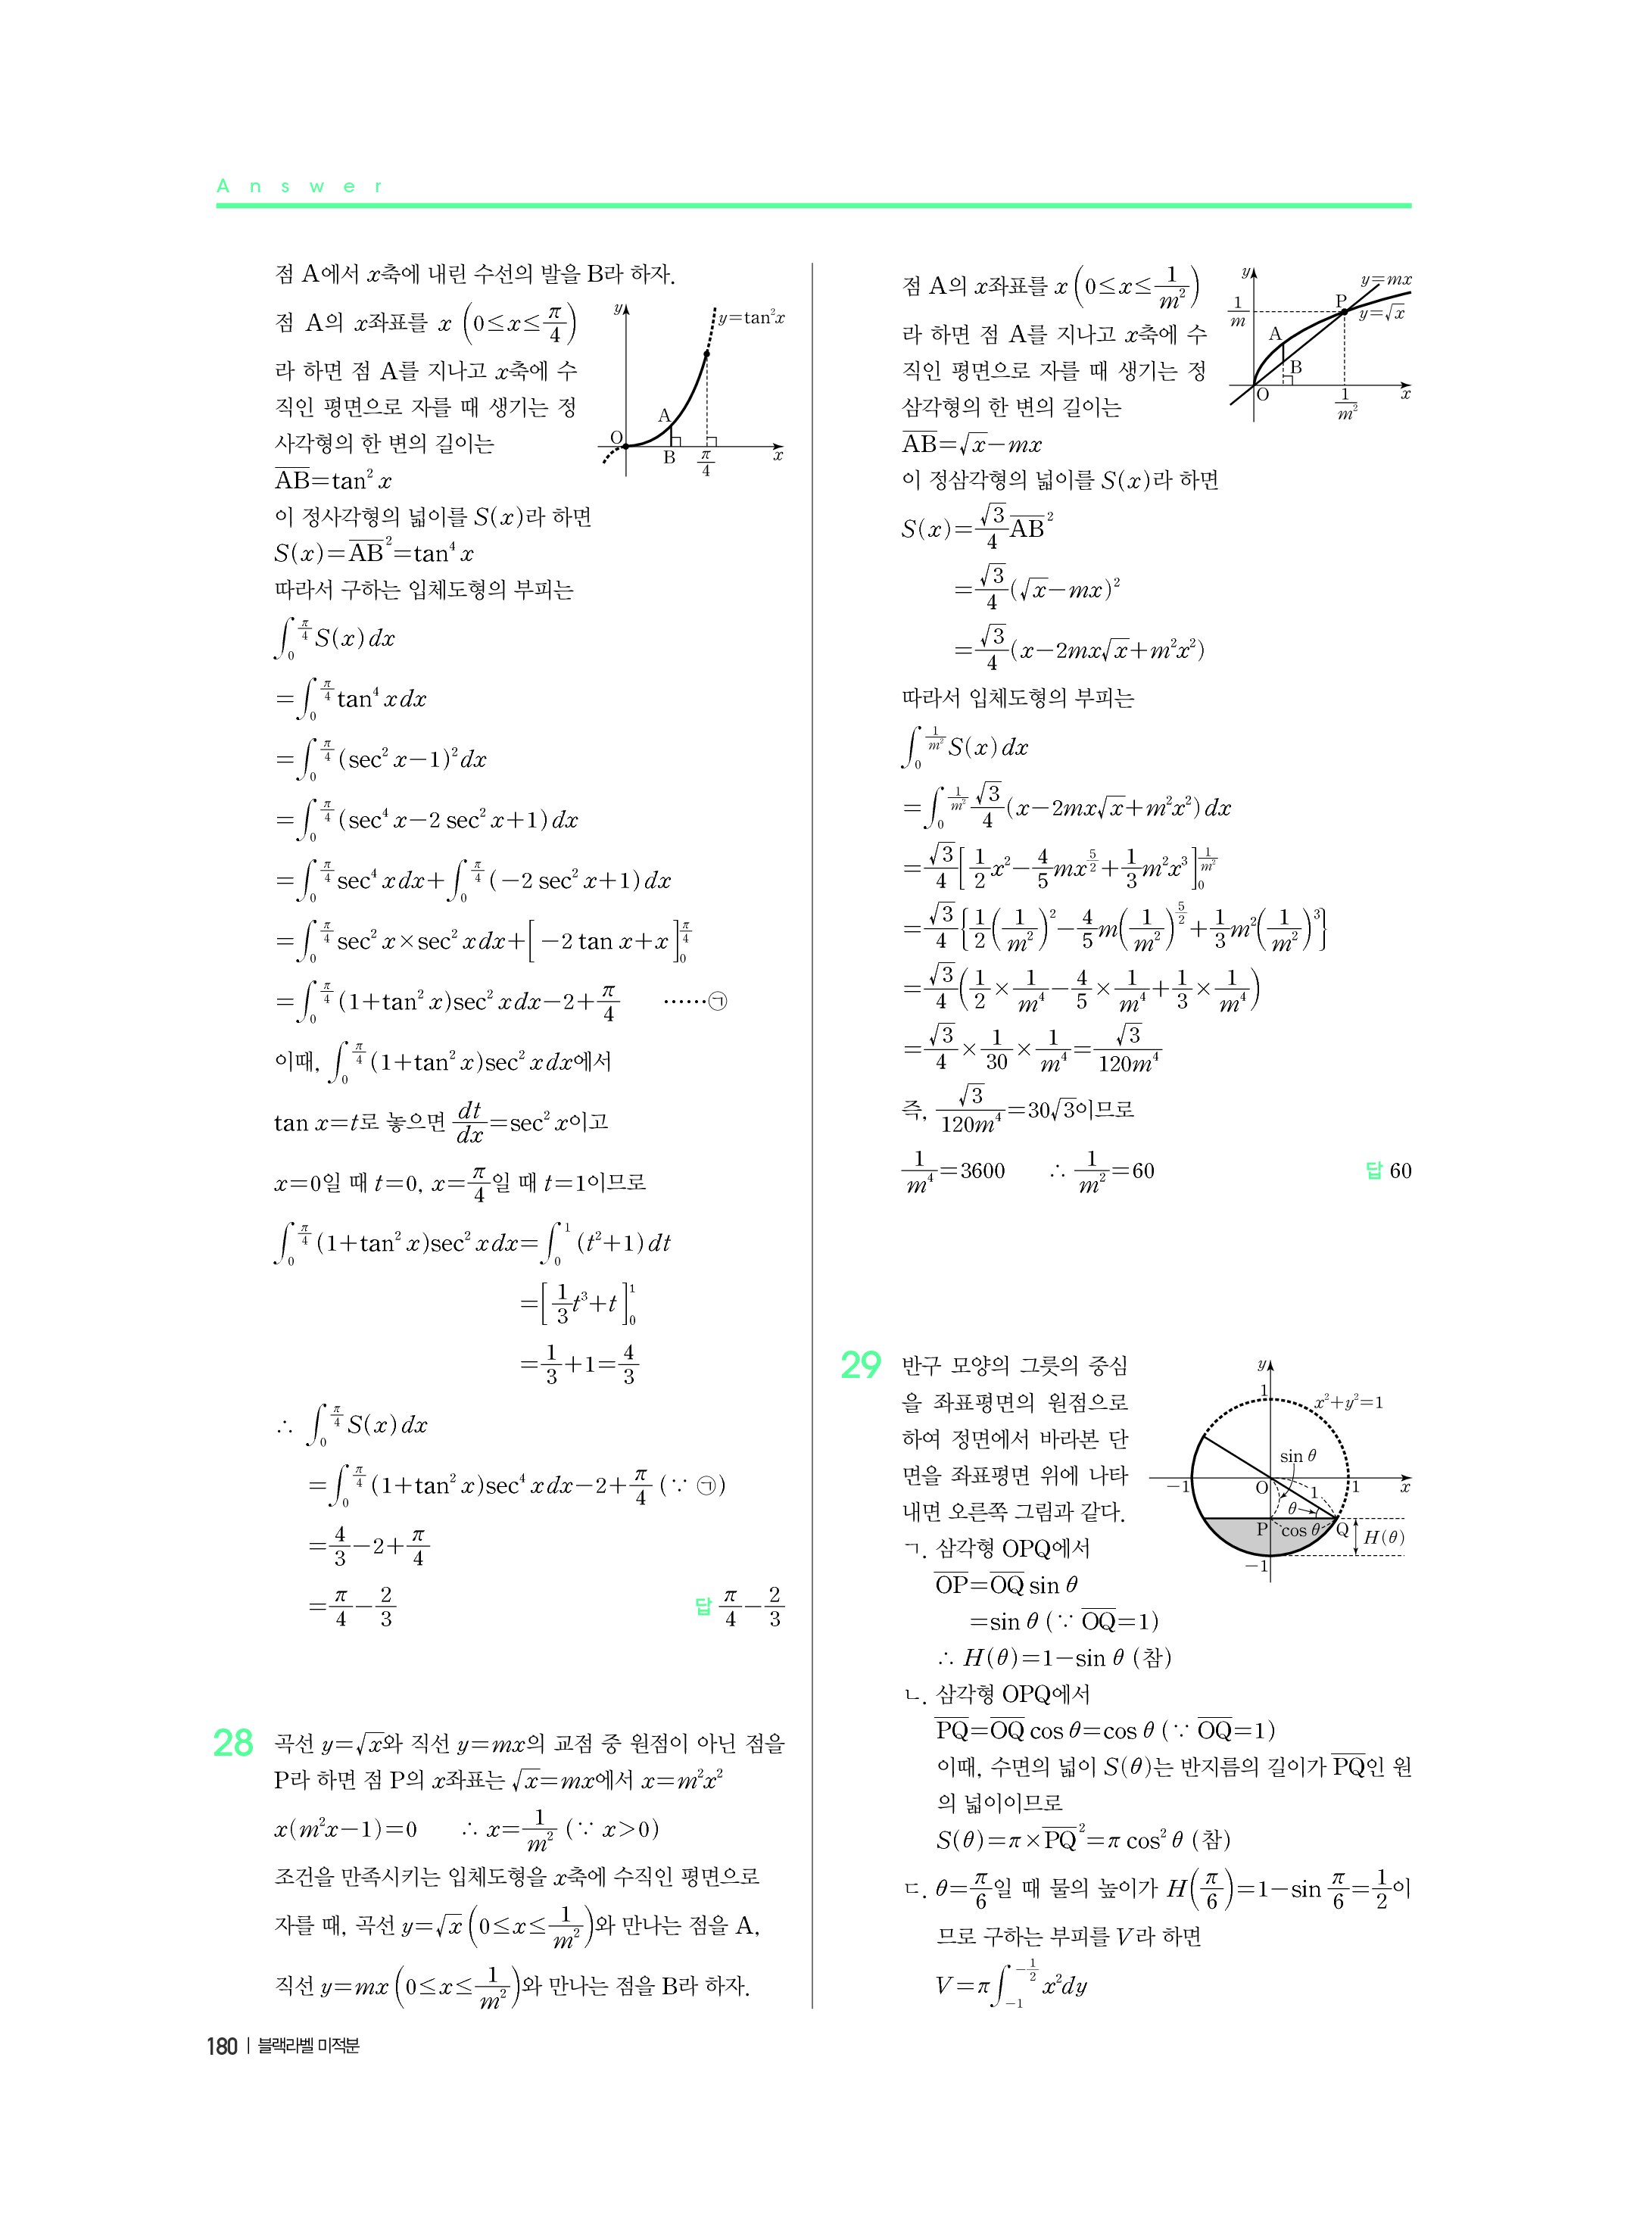 Answer
점 A에서 x축에 내린 수선의 발을 B라 하자.
점 A의 x좌표를 x (0≤x≤π/4)
라 하면 점 A를 지나고 x축에 수
직인 평면으로 자를 때 생기는 정
사각형의 한 변의 길이는
A̅B̅=tan² x
y
y=tan²x
A
O
B
π/4
x
이 정사각형의 넓이를 S(x)라 하면
S(x)=A̅B̅²=tan⁴ x
따라서 구하는 입체도형의 부피는
∫₀^(π/4) S(x)dx
=∫₀^(π/4) tan⁴ xdx
=∫₀^(π/4) (sec² x−1)²dx
=∫₀^(π/4) (sec⁴ x−2 sec² x+1)dx
=∫₀^(π/4) sec⁴ xdx+∫₀^(π/4) (−2 sec² x+1)dx
=∫₀^(π/4) sec² x×sec² xdx+[−2 tan x+x]₀^(π/4)
=∫₀^(π/4) (1+tan² x)sec² xdx−2+π/4 ……㉠
이때, ∫₀^(π/4) (1+tan² x)sec² xdx에서
tan x=t로 놓으면 dt/dx=sec² x이고
x=0일 때 t=0, x=π/4일 때 t=1이므로
∫₀^(π/4) (1+tan² x)sec² xdx=∫₀¹ (t²+1)dt
=[1/3 t³+t]₀¹
=1/3+1=4/3
∴ ∫₀^(π/4) S(x)dx
=∫₀^(π/4) (1+tan² x)sec⁴ xdx−2+π/4 (∵ ㉠)
=4/3−2+π/4
=π/4−2/3 답 π/4−2/3
28 곡선 y=√x와 직선 y=mx의 교점 중 원점이 아닌 점을
P라 하면 점 P의 x좌표는 √x=mx에서 x=m²x²
x(m²x−1)=0 ∴ x=1/m² (∵ x>0)
조건을 만족시키는 입체도형을 x축에 수직인 평면으로
자를 때, 곡선 y=√x (0≤x≤1/m²)와 만나는 점을 A,
직선 y=mx (0≤x≤1/m²)와 만나는 점을 B라 하자.
점 A의 x좌표를 x (0≤x≤1/m²)
라 하면 점 A를 지나고 x축에 수
직인 평면으로 자를 때 생기는 정
삼각형의 한 변의 길이는
A̅B̅=√x−mx
y
y=mx
P
1/m
y=√x
A
B
O
1/m²
x
이 정삼각형의 넓이를 S(x)라 하면
S(x)=√3/4 A̅B̅²
=√3/4(√x−mx)²
=√3/4(x−2mx√x+m²x²)
따라서 입체도형의 부피는
∫₀^(1/m²) S(x)dx
=∫₀^(1/m²) √3/4(x−2mx√x+m²x²)dx
=√3/4[1/2 x²−4/5 mx^(5/2)+1/3 m²x³]₀^(1/m²)
=√3/4{1/2(1/m²)²−4/5 m(1/m²)^(5/2)+1/3 m²(1/m²)³}
=√3/4(1/2×1/m⁴−4/5×1/m⁴+1/3×1/m⁴)
=√3/4×1/30×1/m⁴=√3/(120m⁴)
즉, √3/(120m⁴)=30√3이므로
1/m⁴=3600 ∴ 1/m²=60 답 60
29 반구 모양의 그릇의 중심
을 좌표평면의 원점으로
하여 정면에서 바라본 단
면을 좌표평면 위에 나타
내면 오른쪽 그림과 같다.
y
1
x²+y²=1
sin θ
−1
O
1
1
x
θ
P
cos θ
Q
H(θ)
−1
ㄱ. 삼각형 OPQ에서
O̅P̅=O̅Q̅ sin θ
=sin θ (∵ O̅Q̅=1)
∴ H(θ)=1−sin θ (참)
ㄴ. 삼각형 OPQ에서
P̅Q̅=O̅Q̅ cos θ=cos θ (∵ O̅Q̅=1)
이때, 수면의 넓이 S(θ)는 반지름의 길이가 P̅Q̅인 원
의 넓이이므로
S(θ)=π×P̅Q̅²=π cos² θ (참)
ㄷ. θ=π/6일 때 물의 높이가 H(π/6)=1−sin π/6=1/2이
므로 구하는 부피를 V라 하면
V=π∫₋₁^(−1/2) x²dy
180 | 블랙라벨 미적분